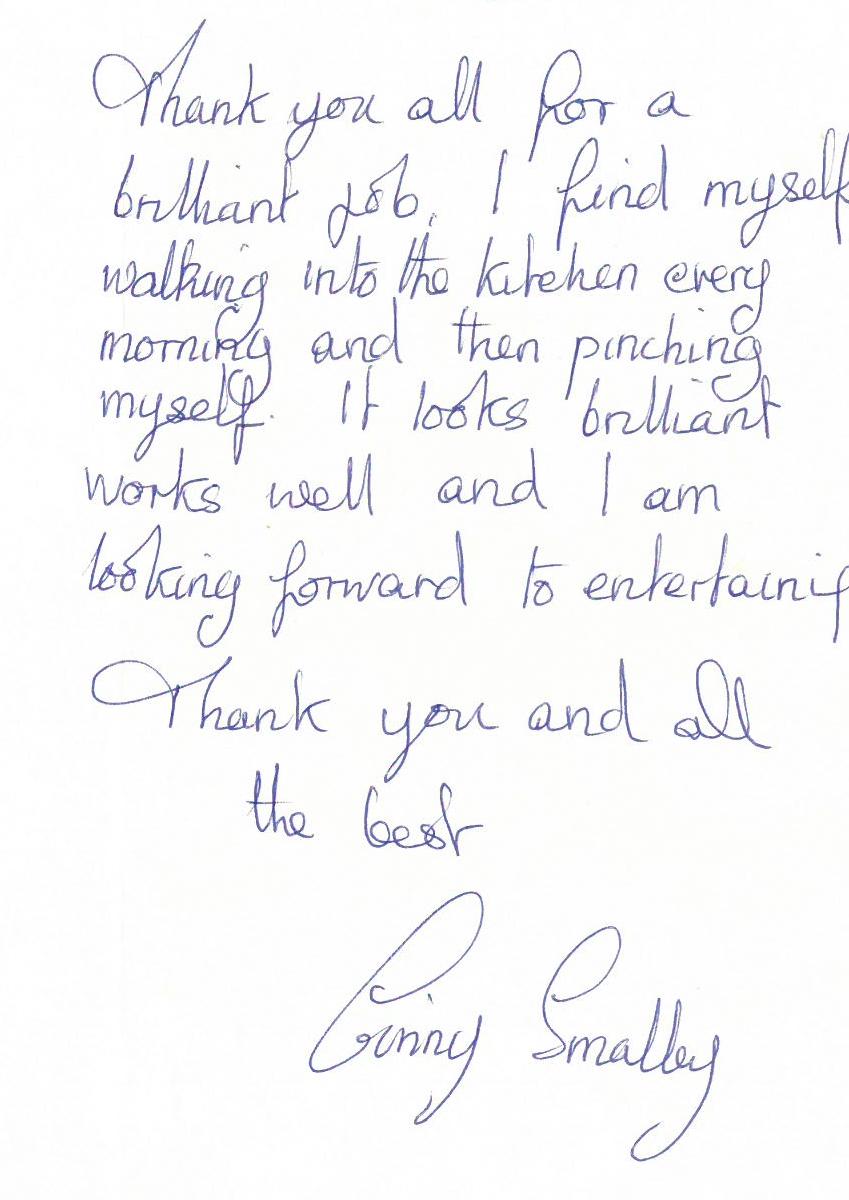 Thank you all for a
brilliant job. I find myself
walking into the kitchen every
morning and then pinching
myself. It looks brilliant
works well and I am
looking forward to entertaining
Thank you and all
the best
Ginny Smalley